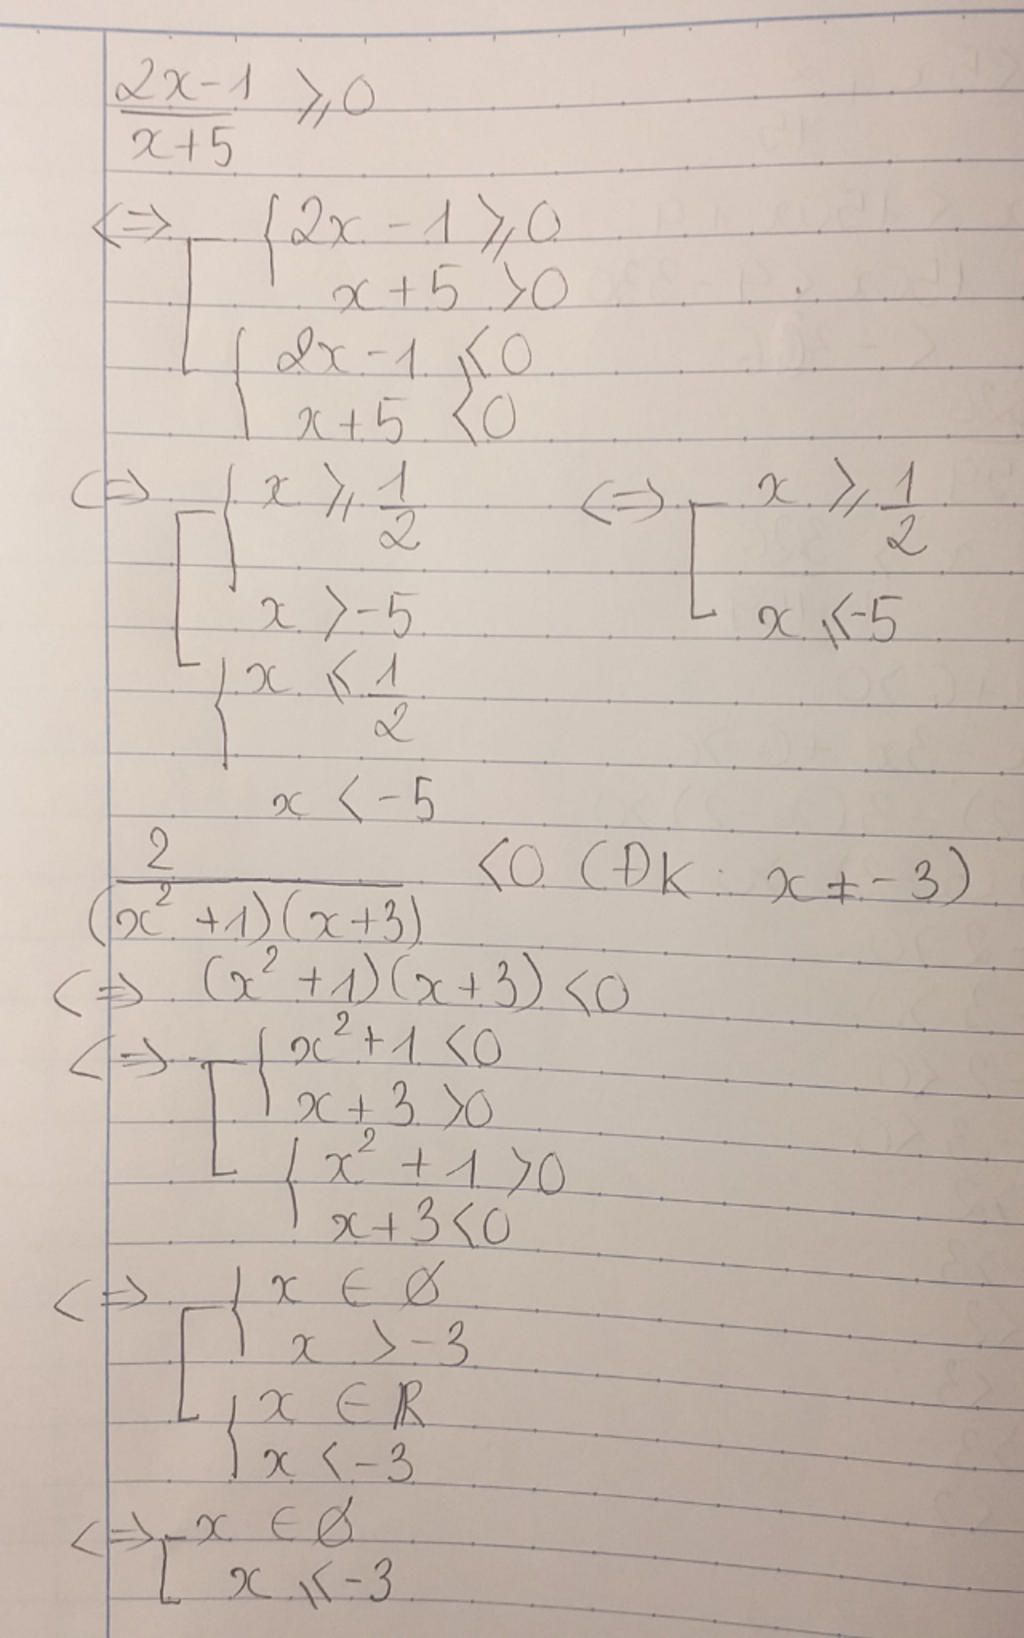 2x-1 ⩾ 0
x+5
⇔ { 2x - 1 ⩾ 0
x + 5 > 0
{ 2x - 1 ⩽ 0
x + 5 < 0
⇔ { x ⩾ 1/2 ⇔ [ x ⩾ 1/2
x > -5 x ⩽ -5
{ x ⩽ 1/2
x < -5
2 / (x² + 1)(x+3) < 0 (ĐK : x ≠ -3)
⇔ (x² + 1)(x+3) < 0
⇔ [ { x² + 1 < 0
x + 3 > 0
{ x² + 1 > 0
x + 3 < 0
⇔ [ { x ∈ ∅
x > -3
{ x ∈ ℝ
x < -3
⇔ [ x ∈ ∅
x ⩽ -3